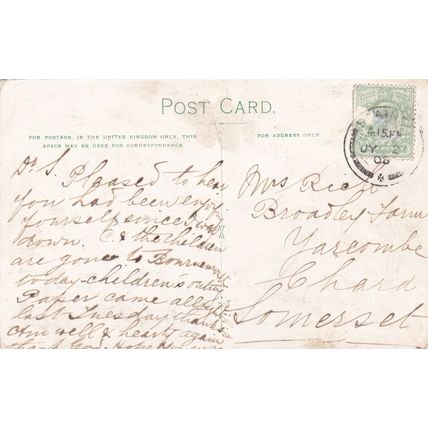 POST CARD.
FOR POSTAGE IN THE UNITED KINGDOM ONLY, THIS
SPACE MAY BE USED FOR CORRESPONDENCE.
FOR ADDRESS ONLY
Dr S. Pleased to hear
you had been enjoy
yourself since I was
down. C. & the children
are gone to Bournemouth
today children's outing
Paper came all right
last Tuesday thanks
Am well & hearty again
thank God. Hope
Mrs Rich
Broadley Farm
Yarcombe
Chard
Somerset
JY
08